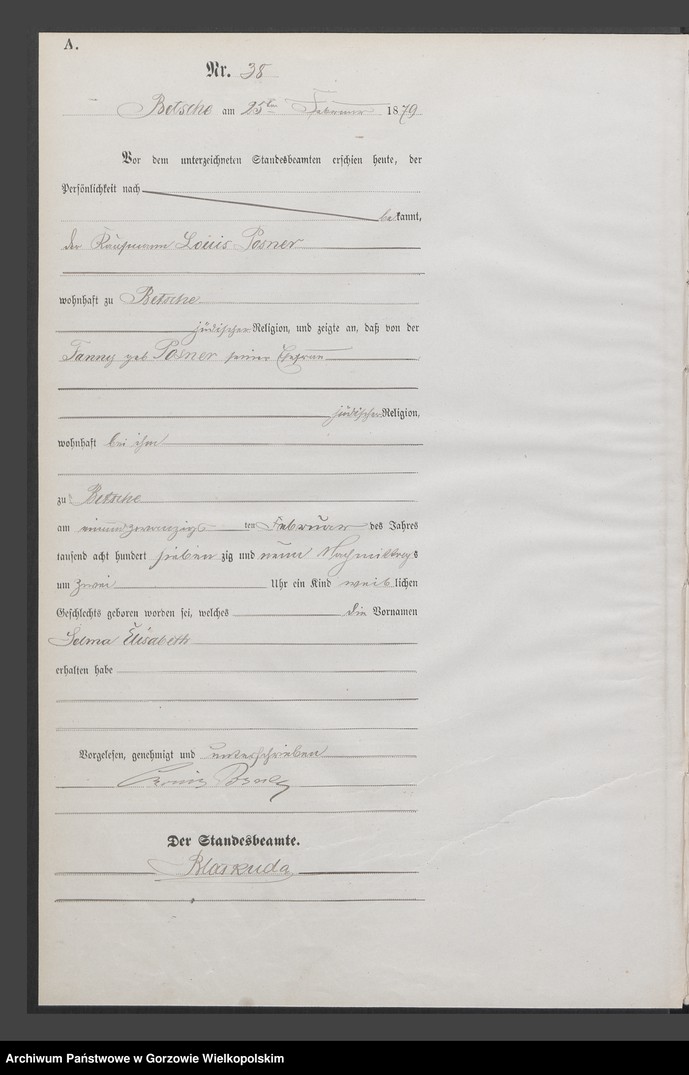 A.
Nr. 38
Betsche am 25ten Februar 1879
Vor dem unterzeichneten Standesbeamten erschien heute, der
Persönlichkeit nach
bekannt,
der Kaufmann Louis Posner
wohnhaft zu Betsche
jüdischer Religion, und zeigte an, daß von der
Fanny geb Posner seiner Ehefrau
jüdischer Religion,
wohnhaft bei ihm
zu Betsche
am einundzwanzig ten Februar des Jahres
tausend acht hundert siebenzig und neun Nachmittags
um zwei Uhr ein Kind weiblichen
Geschlechts geboren worden sei, welches die Vornamen
Selma Elisabeth
erhalten habe
Vorgelesen, genehmigt und unterschrieben
Louis Posner
Der Standesbeamte.
Archiwum Państwowe w Gorzowie Wielkopolskim